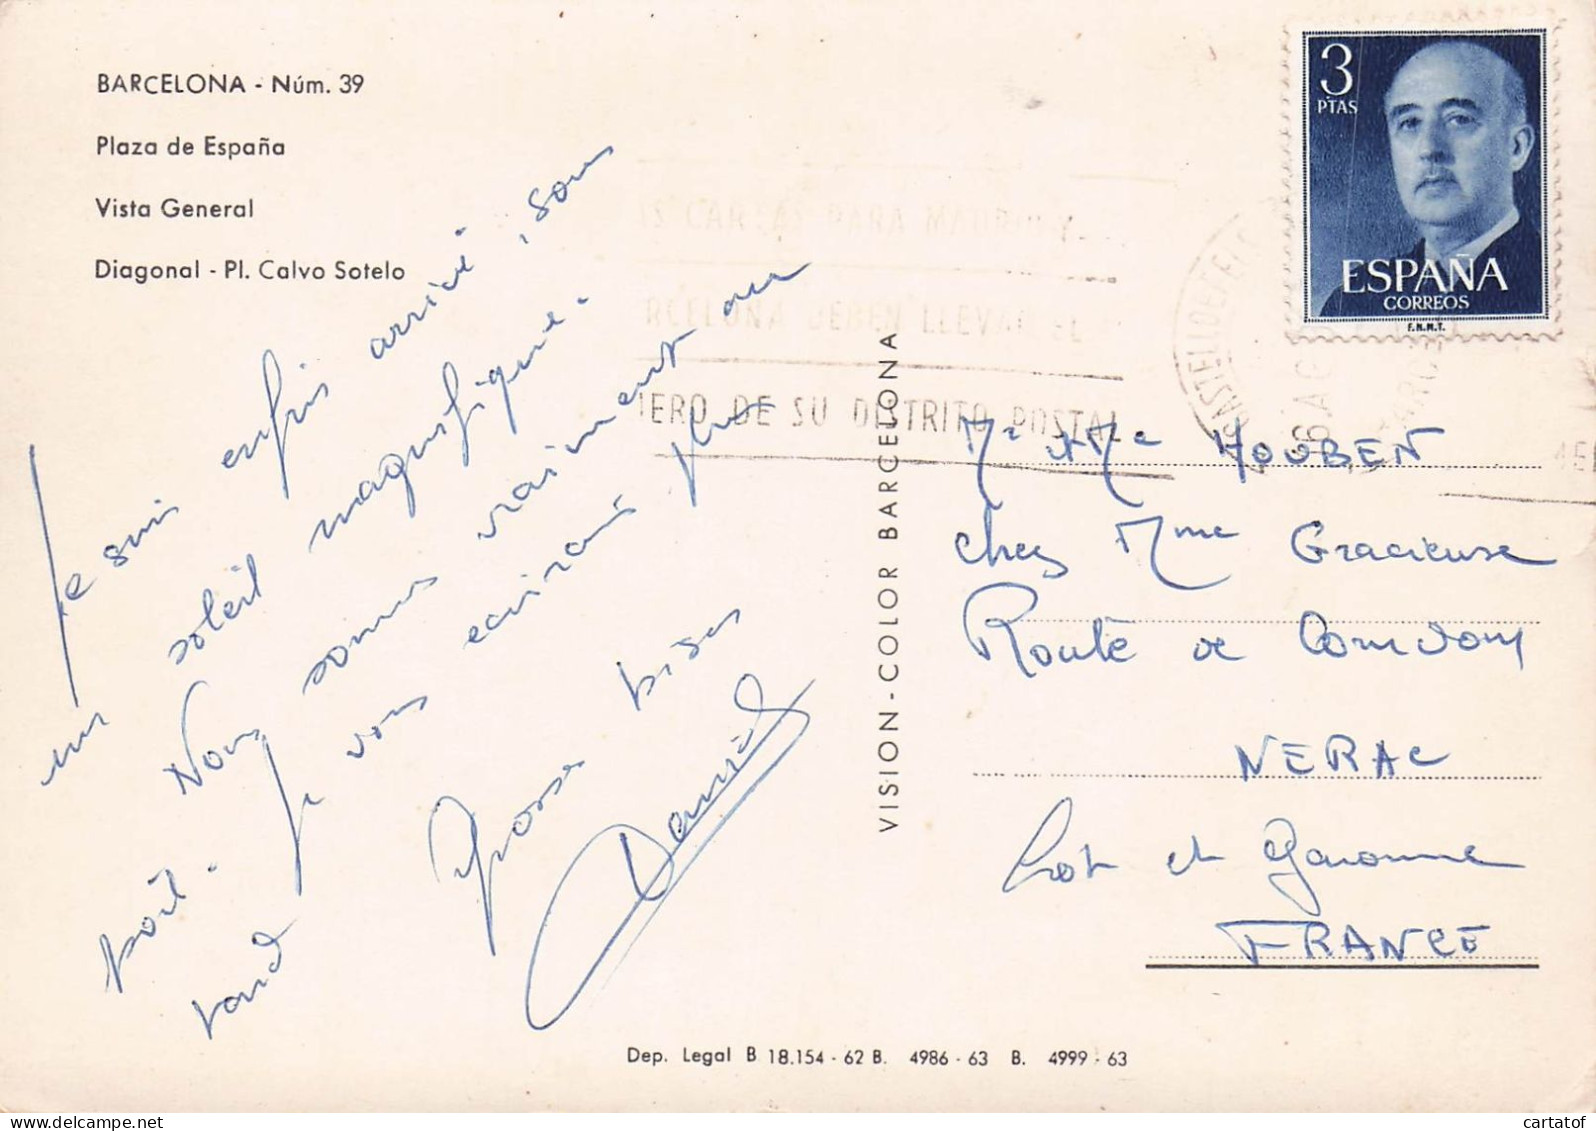 BARCELONA - Núm. 39
Plaza de España
Vista General
Diagonal - Pl. Calvo Sotelo
Je suis enfin arrivé, sous
un soleil magnifique.
Nous sommes vraiment au
poil. Je vous écrirai plus
tard
Grosses bises
Daniel
VISION - COLOR BARCELONA
3
PTAS
ESPAÑA
CORREOS
F.N.M.T.
CARTAS PARA MADRID Y
RCELONA DEBEN LLEVAR EL
ERO DE SU DISTRITO POSTAL
CASTELLDEFELS
BARCELONA
Mr & Mme HOUBEN
chez Mme Gracieuse
Route de Comdom
NERAC
Lot et Garonne
FRANCE
Dep. Legal B 18.154 - 62 B. 4986 - 63 B. 4999 - 63
cartatof